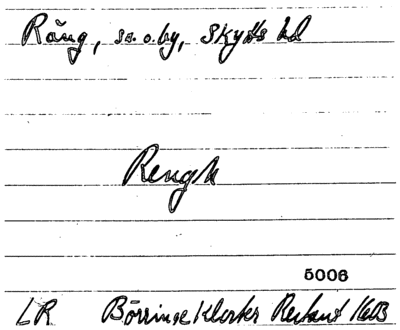 Räng, sn o. by, Skytts hd
Rengh
5006
LR Börringe Kloster Restant 1603